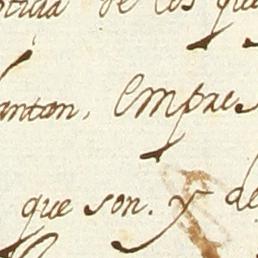 de los que
antan, empres
que son. y de